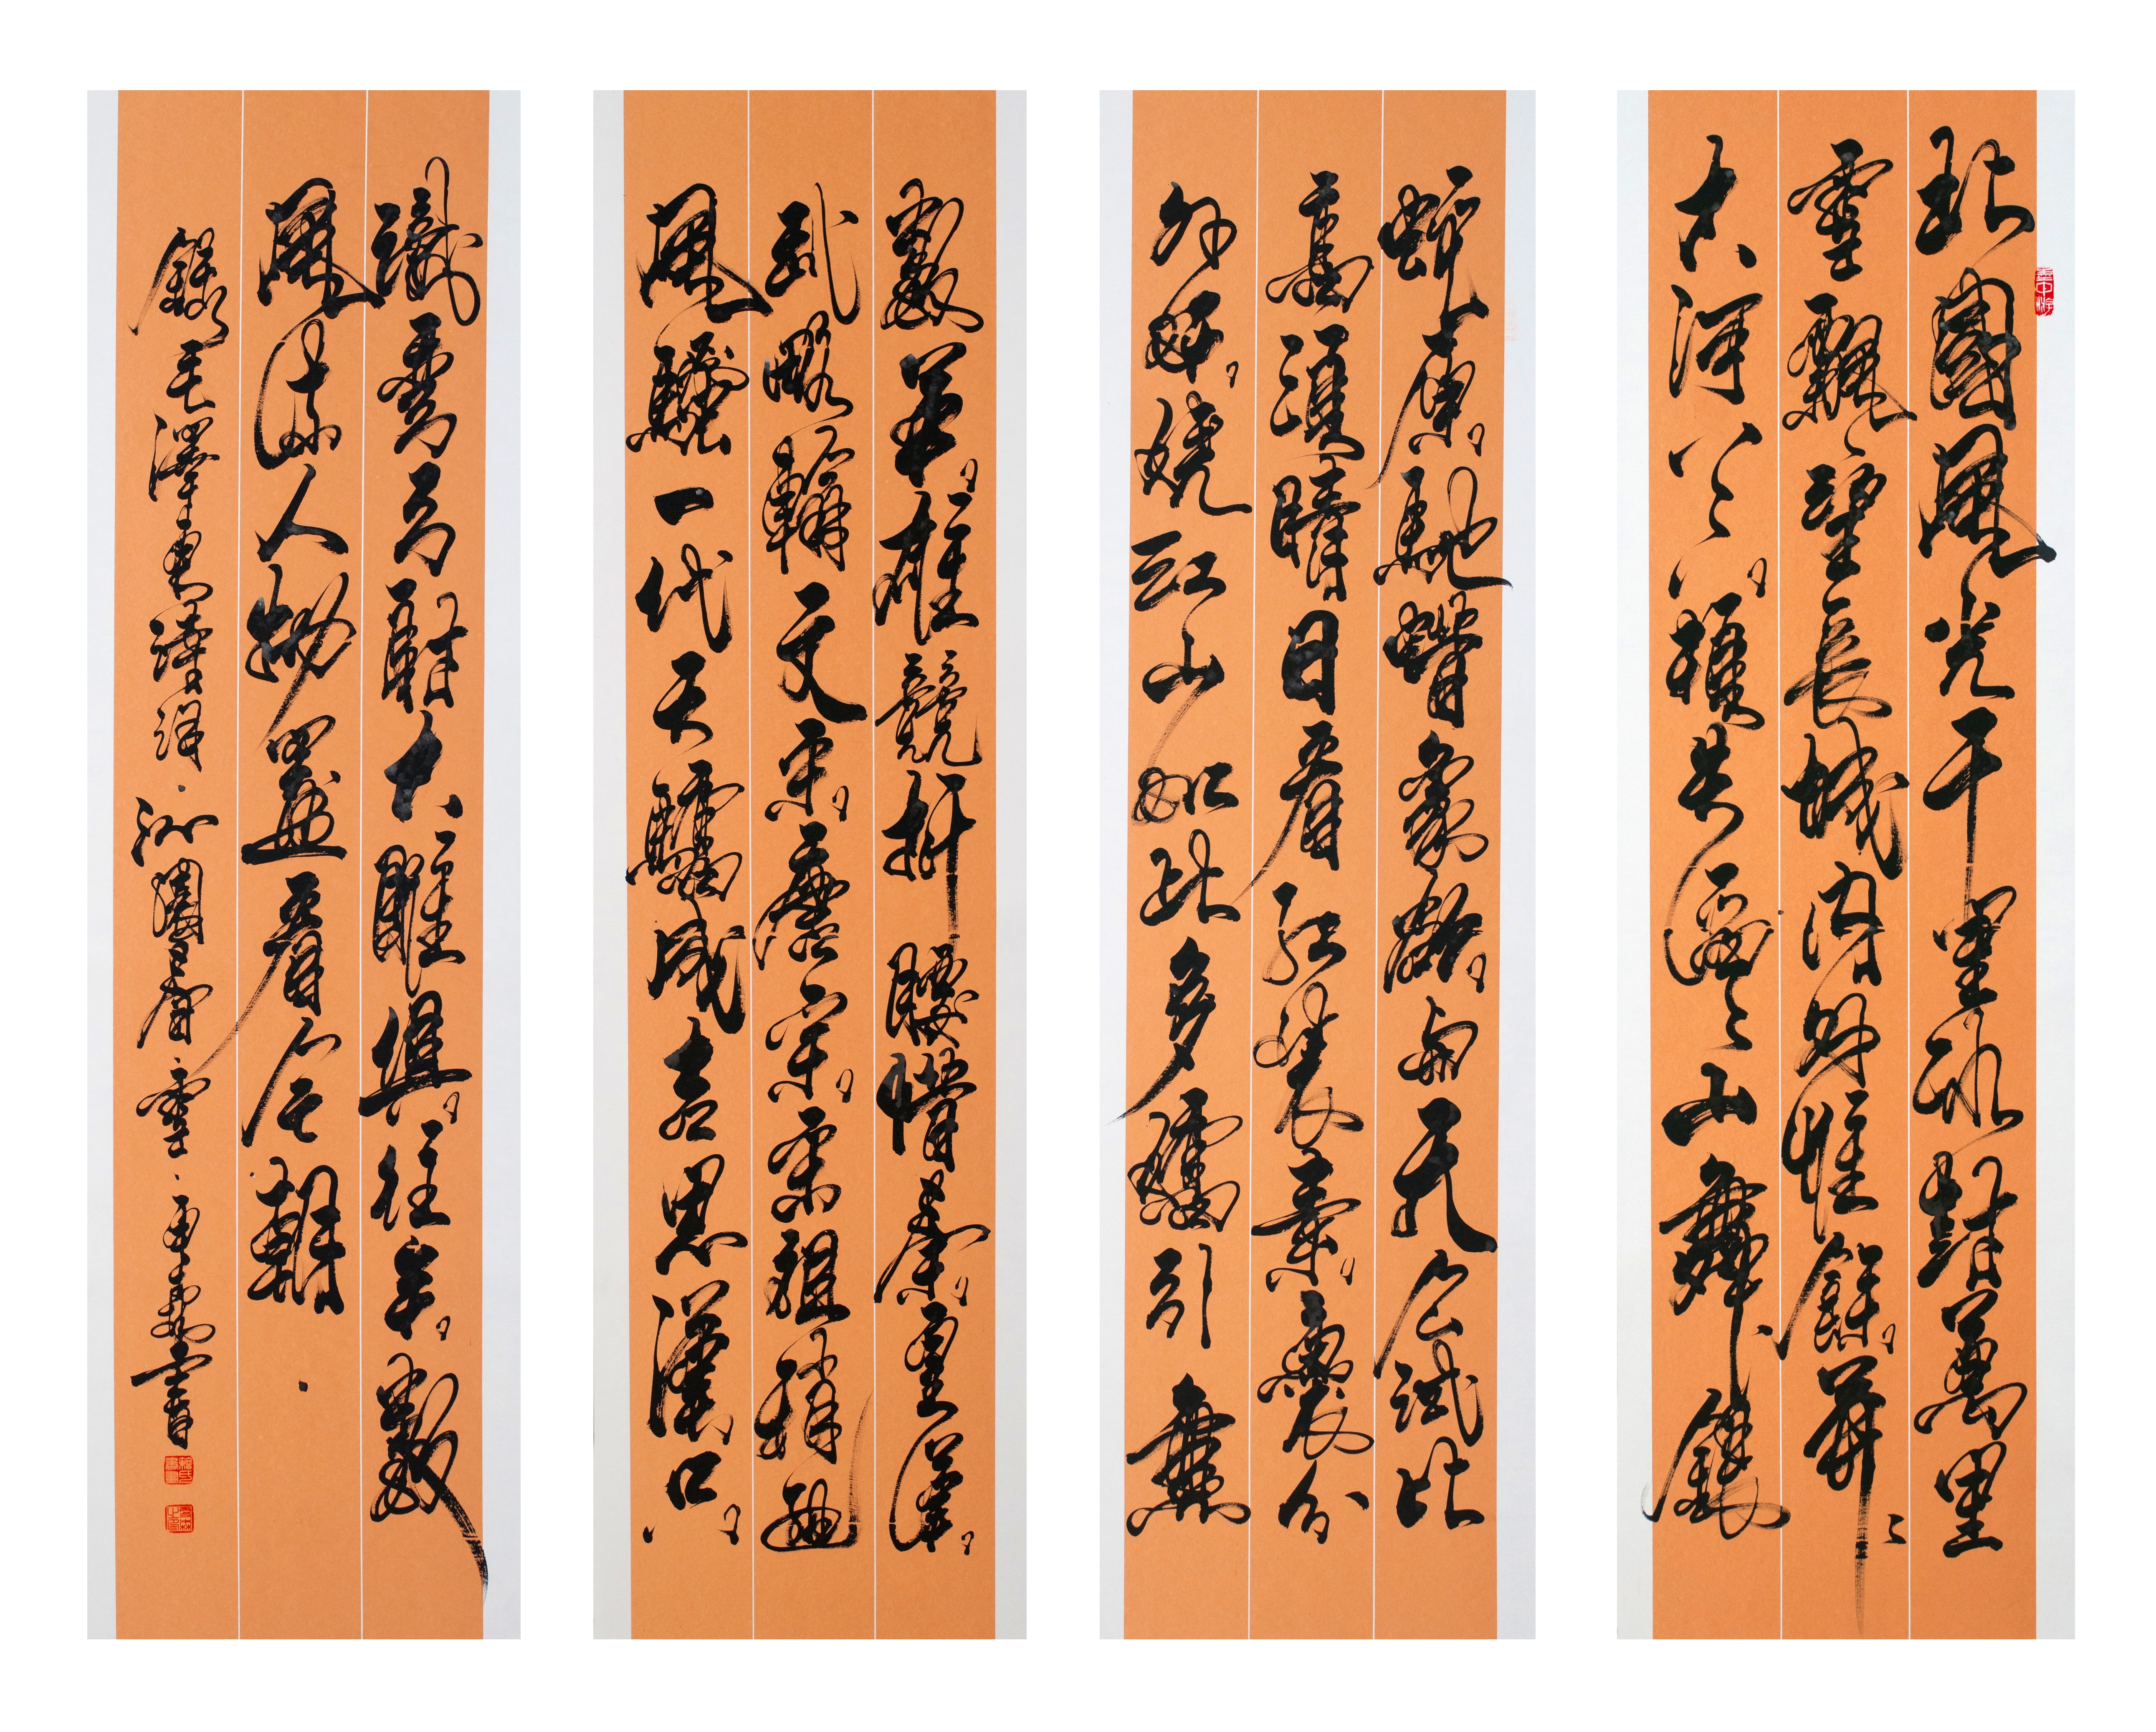 北國風光千里冰封萬里
雪飄望長城內外惟餘莽々
大河上下頓失滔々山舞銀
蛇原馳蠟象欲與天公試比
高須晴日看紅裝素裹分
外妖嬈江山如此多嬌引無
數英雄競折腰惜秦皇漢
武略輸文采唐宗宋祖稍遜
風騷一代天驕成吉思漢只
識彎弓射大雕俱往矣數
風流人物還看今朝
錄毛澤東詩詞·沁園春·雪·書